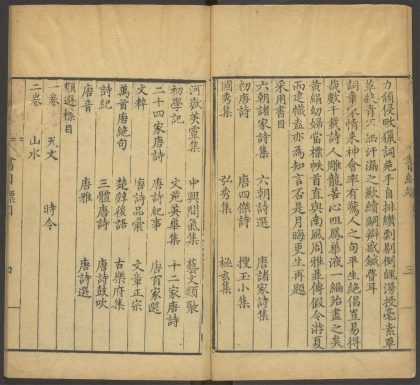 侵畋獵詞苑手自排纘剽剔倒授毫素草
汗漫之歎續辯惑鍼聾耳
詞章不情來神會率有驚人之句平生絕倡豈易得
哉數千載詩人雕龍心咀液一編殆盡之矣
黃絹幼婦當標帙首直與南風周雅並傳假令游夏
而建幟益亦為知言否是月晦更生再題
采用書目
六朝諸家詩集 六朝詩選 唐諸家詩集
初唐詩 唐四傑詩 搜玉小集
國秀集 弘秀集 極玄集
河嶽英靈集 中興間氣集 藝文類聚
初學記 文苑英華集 十二家唐詩
二十四家唐詩 唐詩紀事 唐百家選
文粹 唐詩品彙 文章正宗
萬首唐絕句 楚辭後語 古樂府集
詩紀 三體唐詩 唐詩鼓吹
唐音 唐雅 唐詩選
類選標目
一卷 天文 時令
二卷 山水